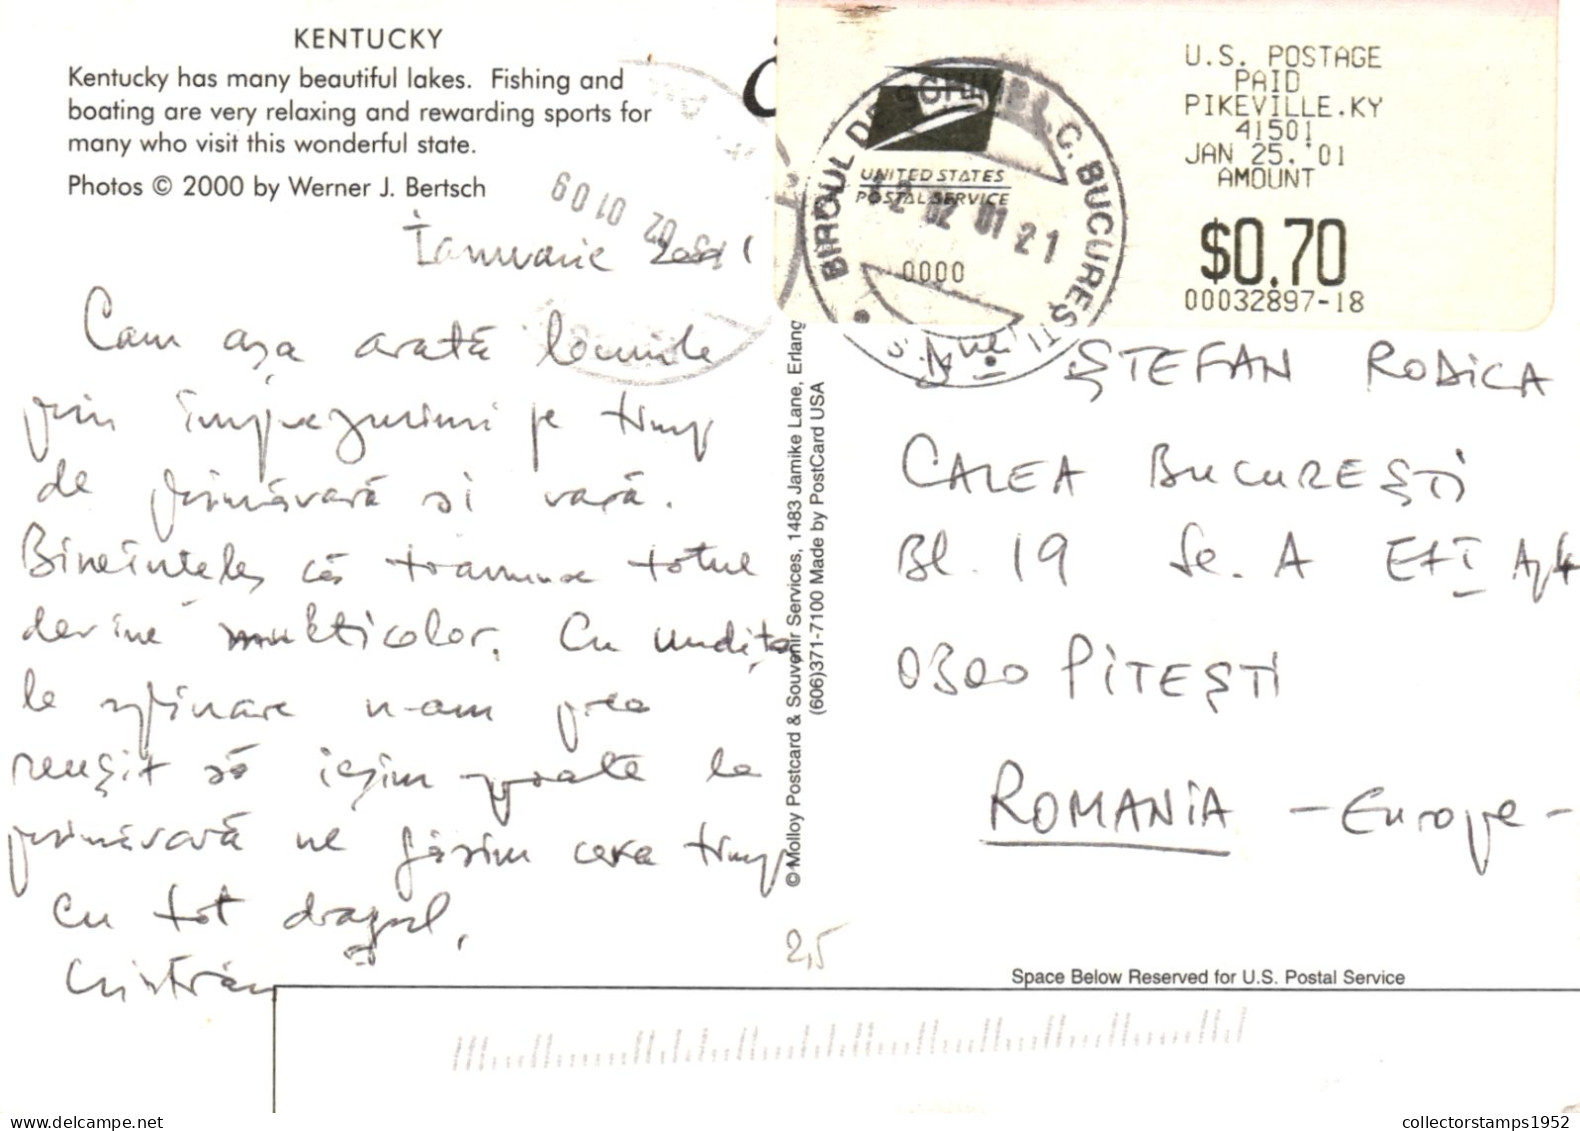 KENTUCKY
Kentucky has many beautiful lakes. Fishing and
boating are very relaxing and rewarding sports for
many who visit this wonderful state.
Photos © 2000 by Werner J. Bertsch
Ianuarie
Cam așa arată locurile
din împrejurimi pe timp
de primăvară si vară.
Bineînțeles că toamna totul
devine multicolor. Cu undița
la n-am prea
reușit să ieșim poate la
primăvară ne găsim ceva timp
cu tot dragul,
Cristian
© Molloy Postcard & Souvenir Services, 1483 Jamike Lane, Erlang
(606)371-7100 Made by PostCard USA
U.S. POSTAGE
PAID
PIKEVILLE.KY
41501
JAN 25. '01
AMOUNT
$0.70
00032897-18
UNITED STATES
POSTAL SERVICE
0000
BIROUL DE C. BUCUREȘTI
12 02 01 21
ȘTEFAN RODICA
CALEA BUCUREȘTI
Bl. 19 Sc. A ET I Ap 4
0300 PITEȘTI
ROMANIA - Europe -
2,5
Space Below Reserved for U.S. Postal Service
www.delcampe.net
collectorstamps1952